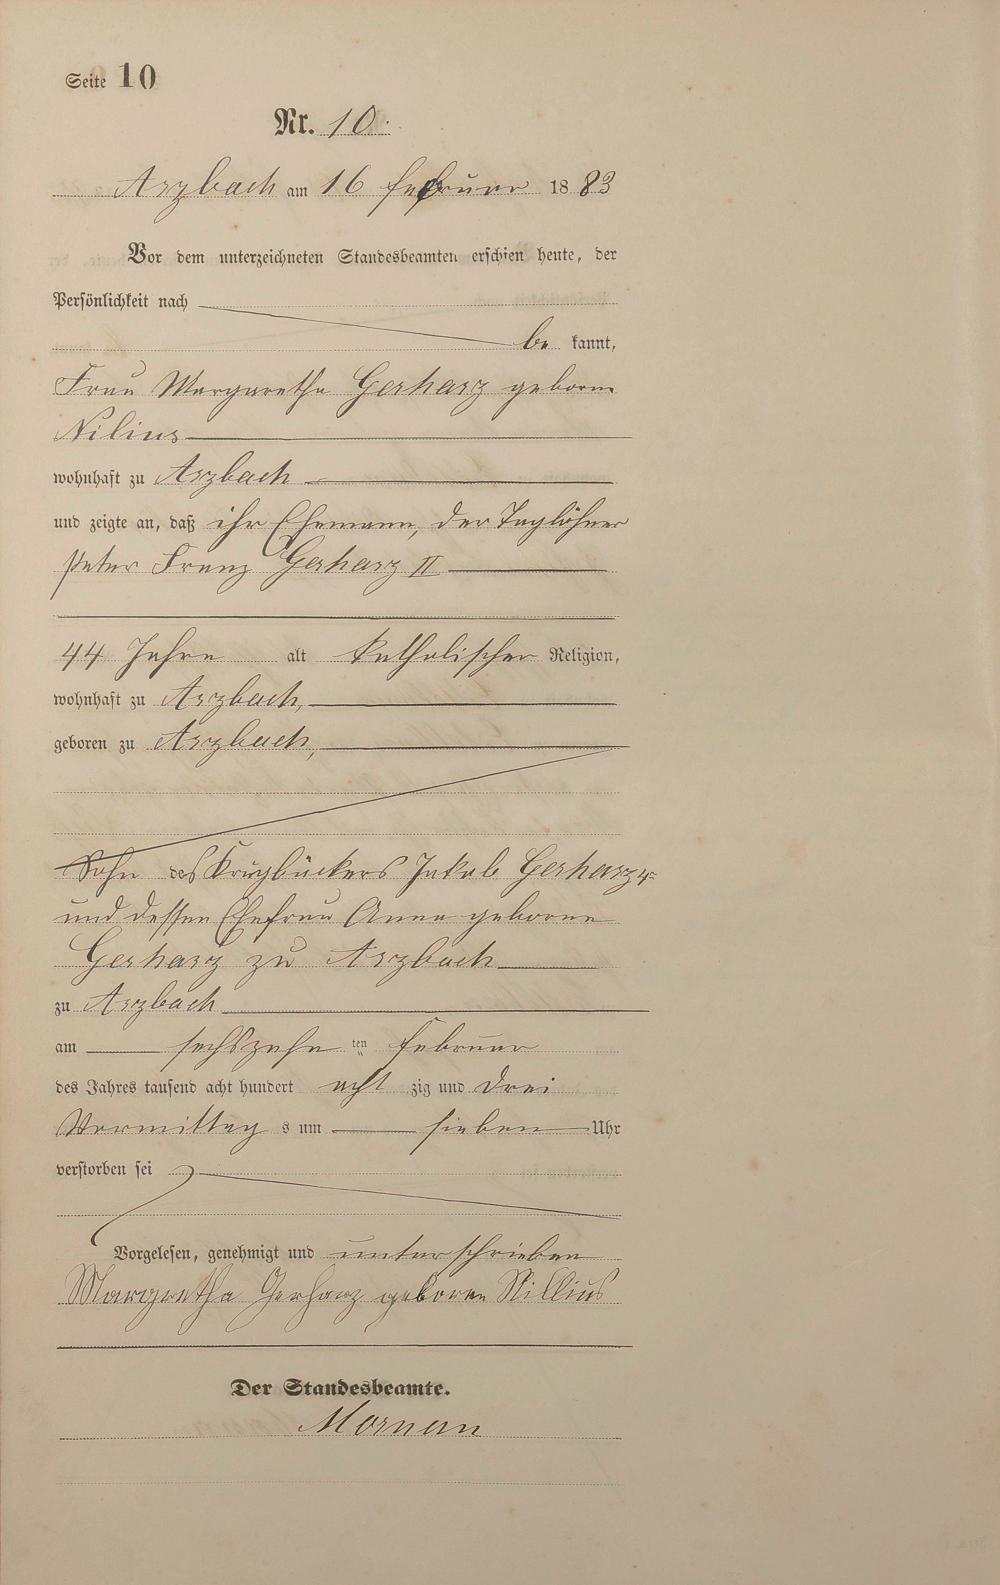 Seite 10
Nr. 10.
Arzbach am 16 Februar 1883
Vor dem unterzeichneten Standesbeamten erschien heute, der
Persönlichkeit nach
be kannt,
Frau Margaretha Gerharz geborne
Nilius
wohnhaft zu Arzbach
und zeigte an, daß ihr Ehemann, der Taglöhner
Peter Franz Gerharz II
44 Jahre alt katholischer Religion,
wohnhaft zu Arzbach,
geboren zu Arzbach,
Sohn des Krugbäckers Jakob Gerharz 4r
und dessen Ehefrau Anna geborene
Gerharz zu Arzbach
zu Arzbach
am sechszehn ten Februar
des Jahres tausend acht hundert acht zig und drei
Vormittag s um sieben Uhr
verstorben sei
Vorgelesen, genehmigt und unterschrieben
Margretha Gerharz geboren Nillius
Der Standesbeamte.